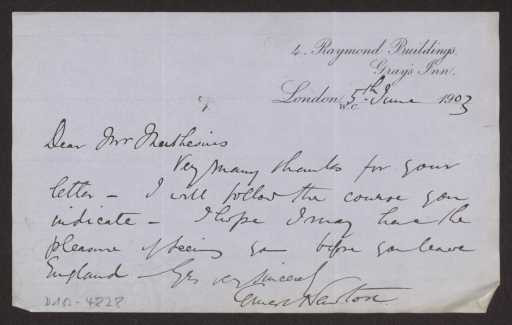 4, Raymond Buildings,
Gray's Inn.
London, W.C. 5th June 1903
Dear Mr Muthesius
Very many thanks for your
letter – I will follow the course you
indicate – I hope I may have the
pleasure of seeing you before you leave
England – Yrs very sincerely
Ernest Newton
D102-4828